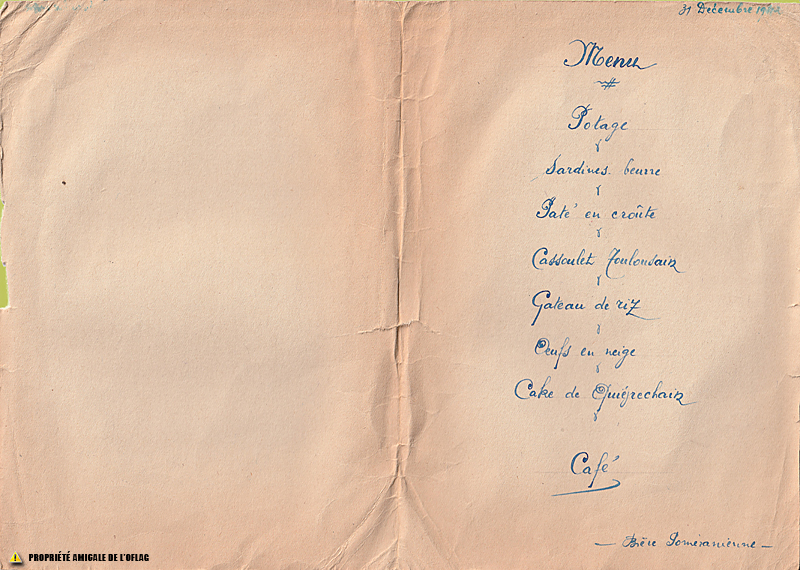 31 Décembre
Menu
Potage
Sardines beurre
Paté en croûte
Cassoulet Toulousain
Gateau de riz
Oeufs en neige
Cake de Quiérechain
Café
— Bière Poméranienne —
PROPRIÉTÉ AMIGALE DE L'OFLAG